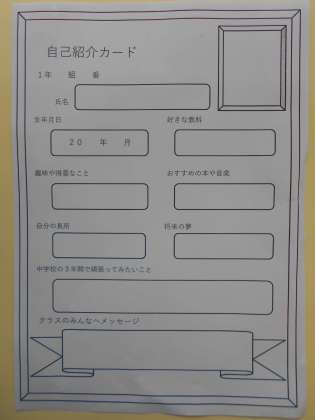 自己紹介カード
1年　組　番
氏名
生年月日　好きな教科
20　年　月
趣味や得意なこと　おすすめの本や音楽
自分の長所　将来の夢
中学校の3年間で頑張ってみたいこと
クラスのみんなへメッセージ